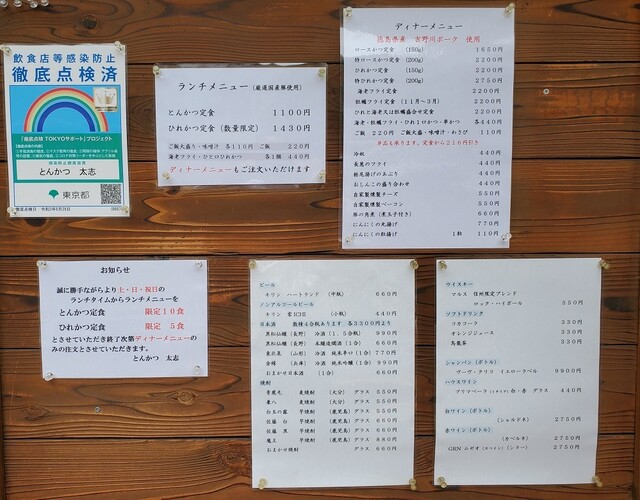 飲食店等感染防止
徹底点検済
「徹底点検 TOKYOサポート」プロジェクト
とんかつ 太志
東京都
ランチメニュー (厳選国産豚使用)
とんかつ定食 1100円
ひれかつ定食 (数量限定) 1430円
ご飯大盛り・味噌汁 各110円 ご飯 220円
海老フライ・ひと口ひれかつ 各1個 440円
ディナーメニューもご注文いただけます
ディナーメニュー
徳島県産 吉野川ポーク 使用
ロースかつ定食 (150g) 1650円
特ロースかつ定食 (200g) 2200円
ひれかつ定食 (150g) 2200円
特ひれかつ定食 (200g) 2750円
海老フライ定食 2200円
牡蠣フライ定食 (11月~3月) 2200円
ひれと海老又は牡蠣盛合せ定食 2200円
海老・牡蠣フライ・ひれ1口かつ・串かつ 各440円
ご飯 220円 ご飯大盛・味噌汁・わさび 110円
単品も承ります。定食から216円引き
冷奴 440円
長葱のフライ 440円
栃尾揚げのあぶり 440円
おしんこの盛り合わせ 440円
自家製燻製チーズ 550円
自家製燻製ベーコン 550円
豚の角煮 (煮玉子付き) 660円
にんにくの丸揚げ 770円
にんにくの粒揚げ 1粒 110円
お知らせ
誠に勝手ながらより土・日・祝日の
ランチタイムからランチメニューを
とんかつ定食 限定10食
ひれかつ定食 限定 5食
とさせていただき終了次第ディナーメニューの
みの注文とさせていただきます。
とんかつ 太志
ビール
キリン ハートランド (中瓶) 660円
ノンアルコールビール
キリン 零ICHI (小瓶) 440円
日本酒 数種4合瓶あります 各3300円より
黒松仙醸 (長野) 冷酒 (1.5合瓶) 990円
黒松仙醸 (長野) 本醸造燗酒 (1合) 660円
東北泉 (山形) 冷酒 純米辛口 (1合) 770円
金鹿 (兵庫) 冷酒 純米吟醸 (1合) 990円
おまかせ日本酒 (1合) 660円
焼酎
青鹿毛 麦焼酎 (大分) グラス 550円
兼八 麦焼酎 (大分) グラス 550円
白玉の露 芋焼酎 (鹿児島) グラス 550円
佐藤 白 芋焼酎 (鹿児島) グラス 660円
佐藤 黒 芋焼酎 (鹿児島) グラス 660円
魔王 芋焼酎 (鹿児島) グラス 880円
おまかせ焼酎 グラス 660円
ウイスキー
マルス 信州限定ブレンド
ロック・ハイボール 550円
ソフトドリンク
コカコーラ 330円
オレンジジュース 330円
烏龍茶 330円
シャンパン (ボトル)
ヴーヴ・クリコ イエローラベル 9900円
ハウスワイン
白・赤 グラス 440円
白ワイン (ボトル)
(シャルドネ) 2750円
赤ワイン (ボトル)
(カベルネ) 2750円
(シラー) 2750円